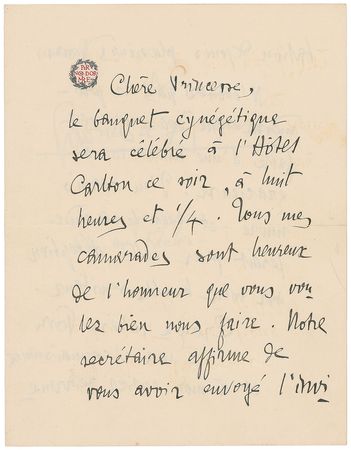 PER
NON DOR
MIRE
Chère Princesse,
le banquet cynégétique
sera célébré à l'Hôtel
Carlton ce soir, à huit
heures et 1/4. Tous mes
camarades sont heureux
de l'honneur que vous vou
lez bien nous faire. Notre
secrétaire affirme de
vous avoir envoyé l'invi